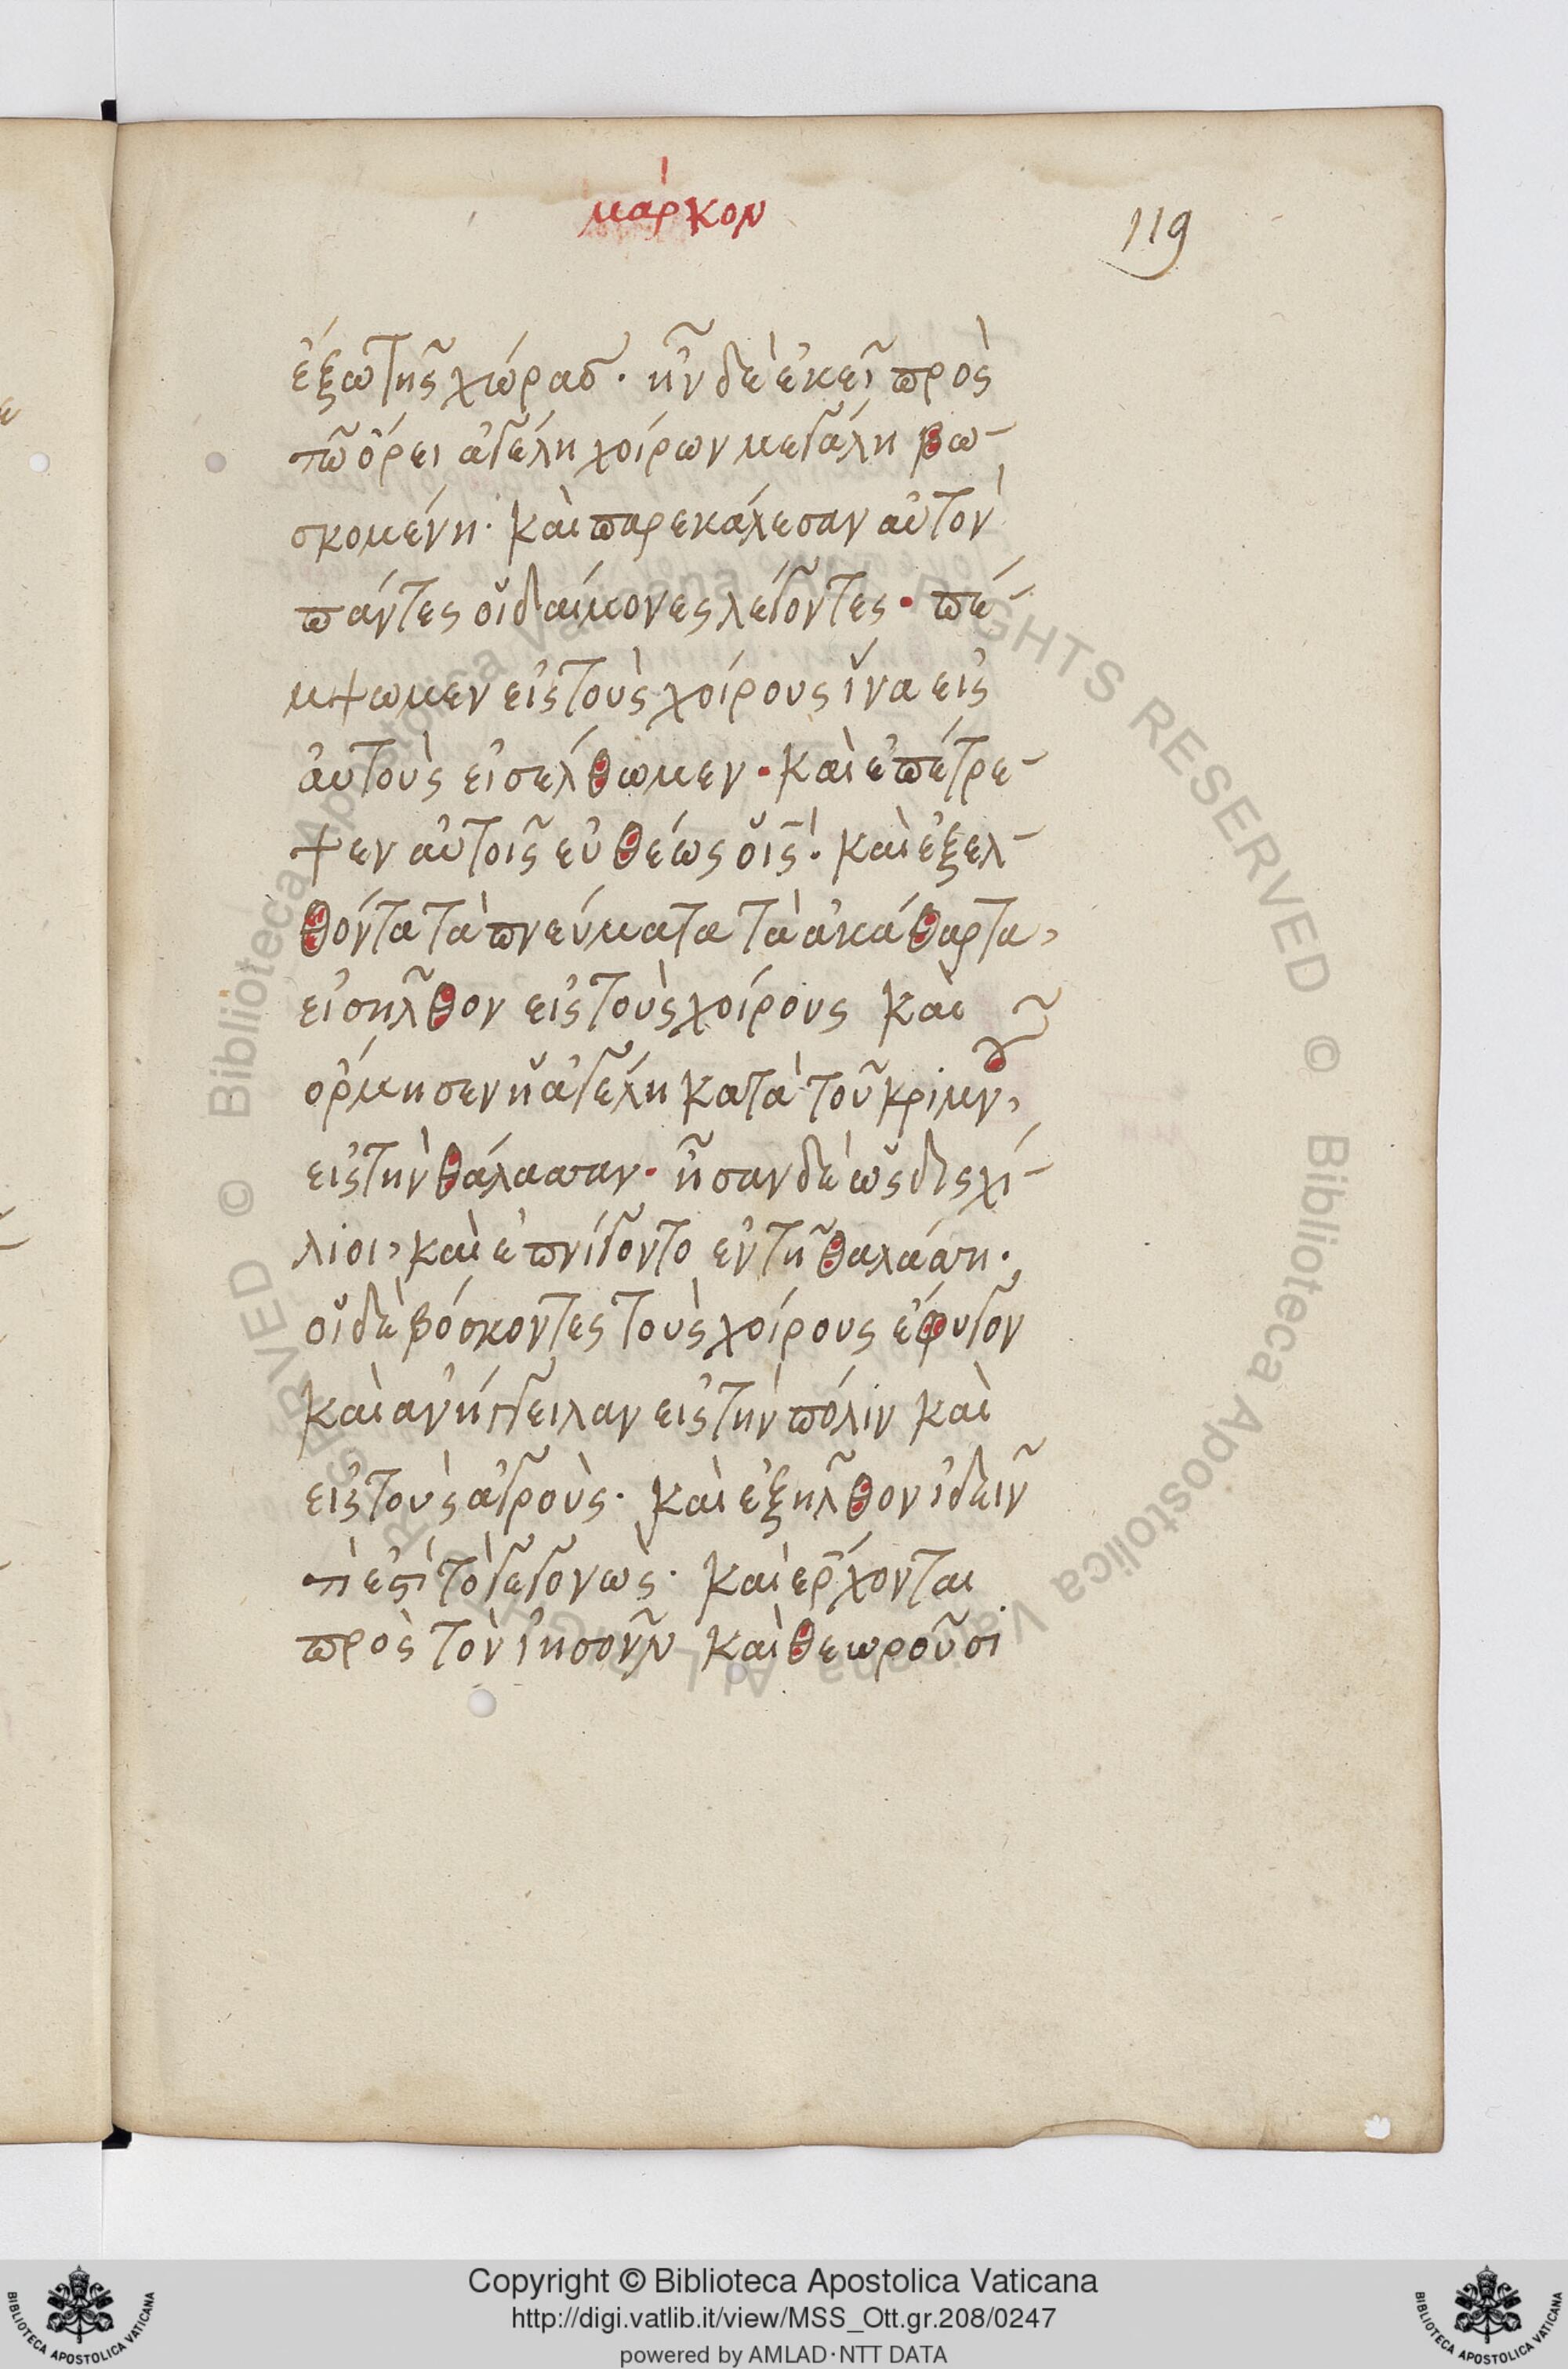 μάρκον
119
ἔξω τῆς χώρας· ἦν δὲ ἐκεῖ πρὸς
τῶ ὄρει ἀγέλη χοίρων μεγάλη βω-
σκομένη· καὶ παρεκάλεσαν αὐτὸν
πάντες οἱ δαίμονες λέγοντες· πέ-
μψωμεν εἰς τοὺς χοίρους ἵνα εἰς
αὐτοὺς εἰσέλθωμεν· καὶ ἐπέτρε-
ψεν αὐτοῖς εὐθέως ὁ ις· καὶ ἐξελ-
θόντα τὰ πνεύματα τὰ ἀκάθαρτα,
εἰσῆλθον εἰς τοὺς χοίρους καὶ
ὅρμησεν ἡ ἀγέλη κατὰ τοῦ κριμνοῦ,
εἰς τὴν θάλασσαν· ἦσαν δὲ ὡς δισχί-
λιοι, καὶ ἐπνίγοντο ἐν τῆ θαλάσση·
οἱ δὲ βόσκοντες τοὺς χοίρους ἔφυγον
καὶ ἀνήγγειλαν εἰς τὴν πόλιν καὶ
εἰς τοὺς ἀγροὺς· καὶ ἐξῆλθον ἰδεῖν
τὶ ἐστὶ τὸ γεγονὼς· καὶ ἔρχονται
πρὸς τὸν ἰησοῦν καὶ θεωροῦσι
© Biblioteca Apostolica Vaticana ALL RIGHTS RESERVED © Biblioteca Apostolica Vaticana ALL RIGHTS RESERVED
Copyright © Biblioteca Apostolica Vaticana
http://digi.vatlib.it/view/MSS_Ott.gr.208/0247
powered by AMLAD·NTT DATA
BIBLIOTECA APOSTOLICA VATICANA
BIBLIOTECA APOSTOLICA VATICANA